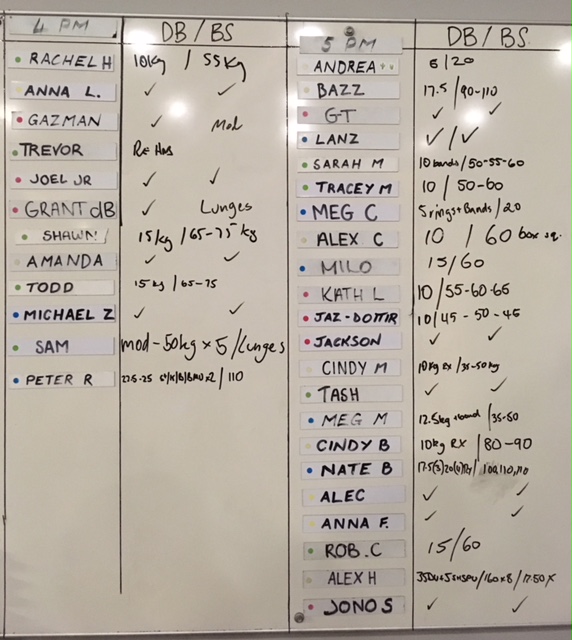 4 PM DB/BS
RACHEL H 10kg / 55kg
ANNA L. ✓ ✓
GAZMAN ✓ Mod
TREVOR
JOEL JR ✓ ✓
GRANT dB ✓ Lunges
SHAWN 15kg / 65-75 kg
AMANDA ✓ ✓
TODD 15kg / 65-75
MICHAEL Z ✓ ✓
SAM mod-50kg x 5 / Lunges
PETER R 22.5-25 / 110
5 PM DB/BS
ANDREA 6/20
BAZZ 17.5 / 90-110
GT ✓ ✓
LANZ ✓/✓
SARAH M 10 bands / 50-55-60
TRACEY M 10 / 50-60
MEG C 5 rings + Bands / 20
ALEX C 10 / 60 box sq.
MILO 15/60
KATH L 10/55-60-65
JAZ-DOTTIR 10/45-50-45
JACKSON ✓ ✓
CINDY M 10kg RX / 35-50kg
TASH ✓ ✓
MEG M 12.5kg + band / 35-50
CINDY B 10kg RX / 80-90
NATE B
ALEC ✓ ✓
ANNA F. ✓ ✓
ROB.C 15/60
ALEX H / 160x8 / 17.50 X
JONO S ✓ ✓